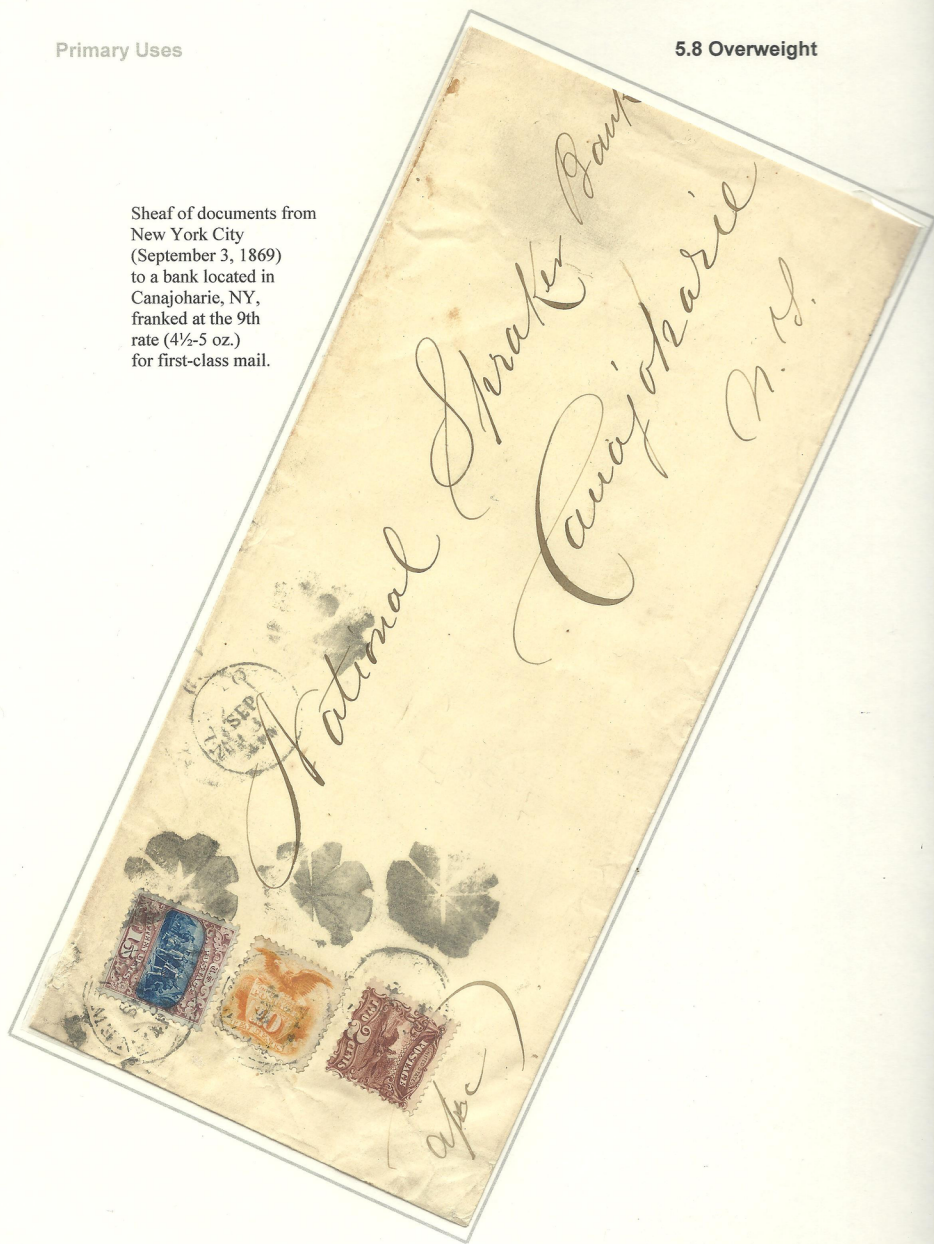 Primary Uses
5.8 Overweight
Sheaf of documents from
New York City
(September 3, 1869)
to a bank located in
Canajoharie, NY,
franked at the 9th
rate (4½-5 oz.)
for first-class mail.
National Spraker Bank
Canajoharie
N. Y.
SEP
3
15
10
POSTAGE